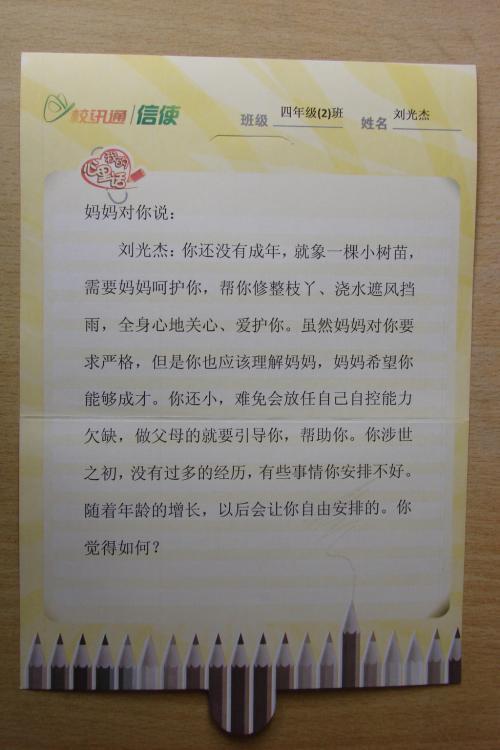 校讯通 信使
班级 四年级(2)班 姓名 刘光杰
我的
心里话
妈妈对你说：
刘光杰：你还没有成年，就象一棵小树苗，
需要妈妈呵护你，帮你修整枝丫、浇水遮风挡
雨，全身心地关心、爱护你。虽然妈妈对你要
求严格，但是你也应该理解妈妈，妈妈希望你
能够成才。你还小，难免会放任自己自控能力
欠缺，做父母的就要引导你，帮助你。你涉世
之初，没有过多的经历，有些事情你安排不好。
随着年龄的增长，以后会让你自由安排的。你
觉得如何？